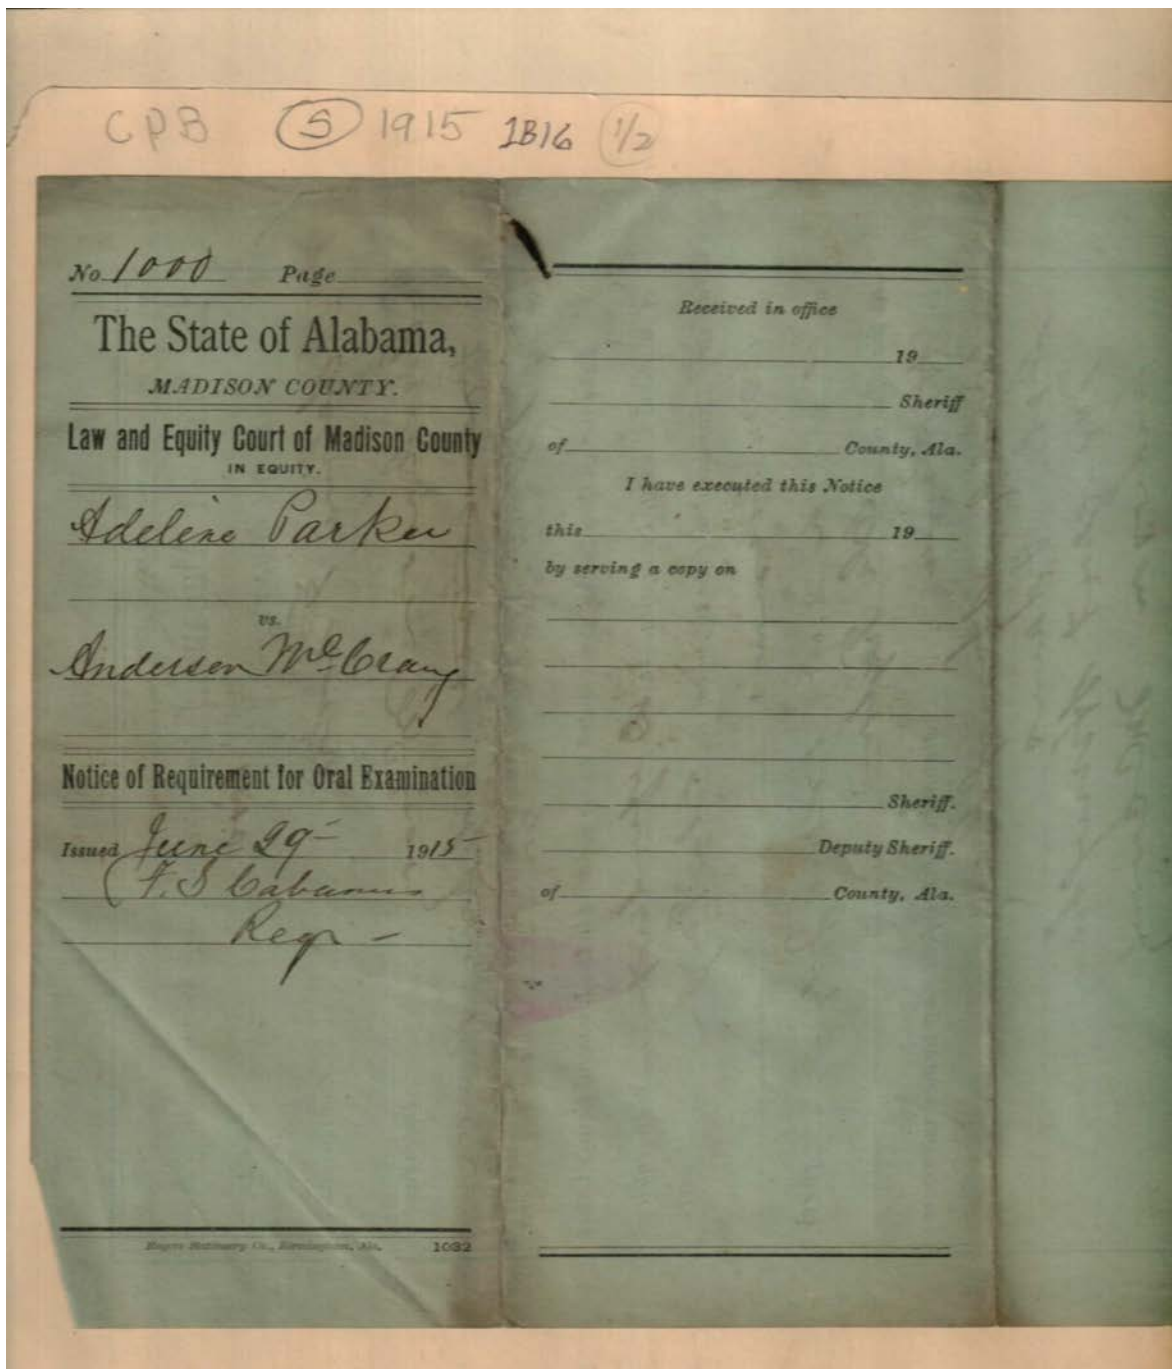 CPB (5) 1915 1B16 (1/2)
No. 1000 Page
The State of Alabama,
MADISON COUNTY.
Law and Equity Court of Madison County
IN EQUITY.
Adeline Parker
vs.
Anderson
Notice of Requirement for Oral Examination
Issued June 29 1915
F. S. Cabaniss
Regr
Stationery Co., Birmingham, Ala. 1032
Received in office
19
Sheriff
of County, Ala.
I have executed this Notice
this 19
by serving a copy on
Sheriff.
Deputy Sheriff.
of County, Ala.